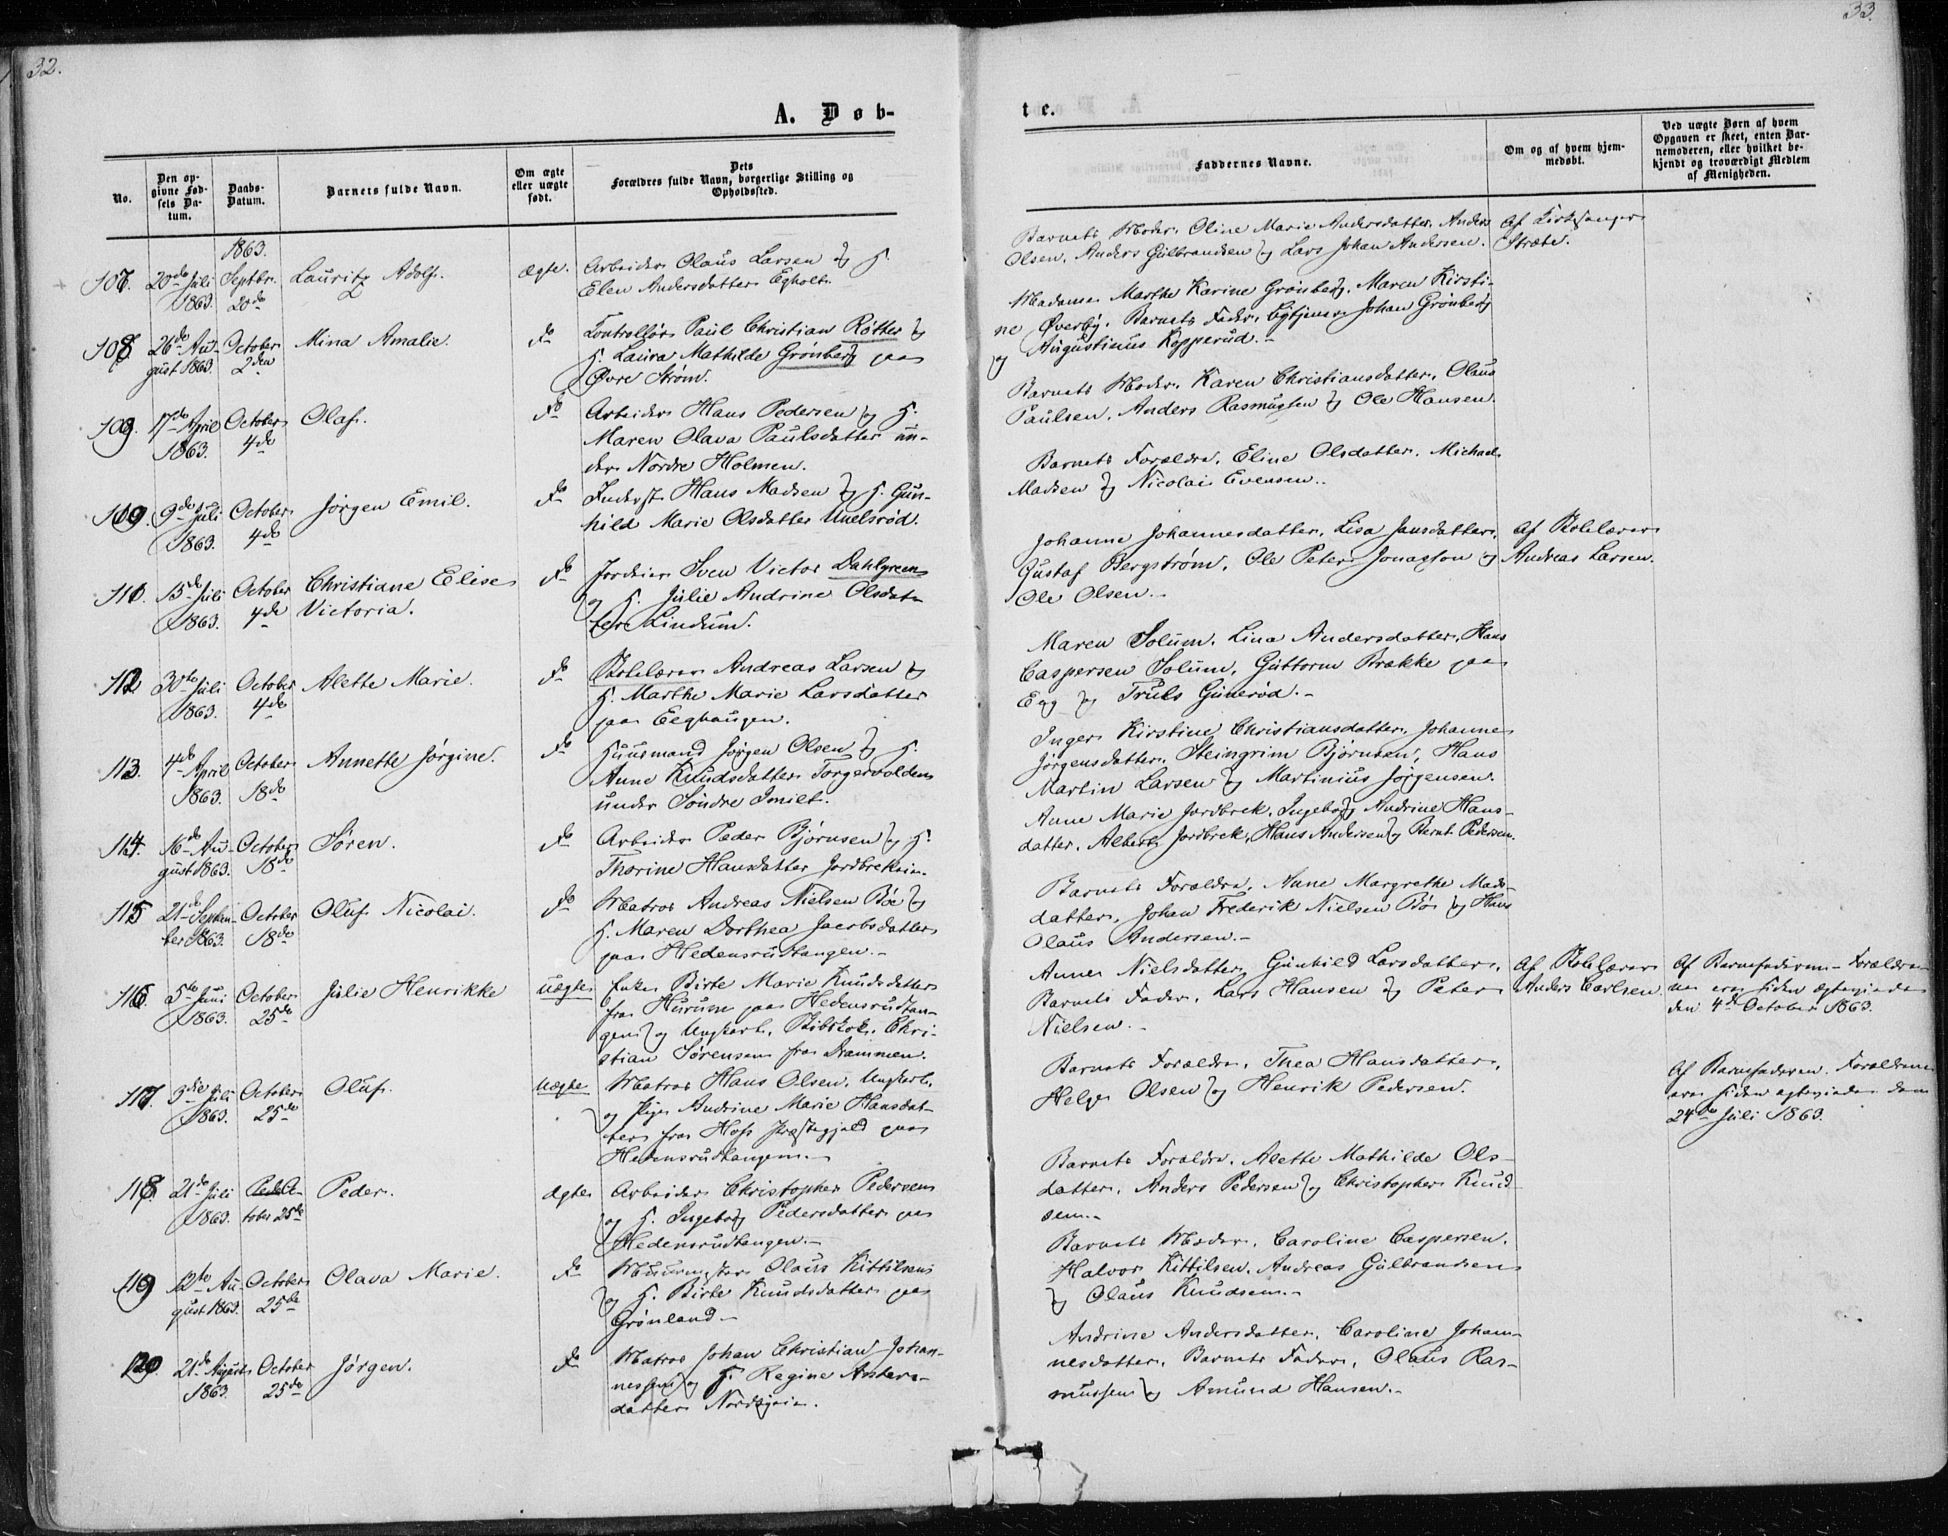 32.
A. Døb-
No.
Den op-
givne Fød-
sels Da-
tum.
Daabs-
Datum.
Barnets fulde Navn.
Om ægte
eller uægte
født.
Dets
Forældres fulde Navn, borgerlige Stilling og
Opholdssted.
1863.
107. 20de Juli Septbr. Lauritz Adolf. ægte. Arbeider Olaus Larsen og H.
1863. 20de Elen Andersdatter Egholt.
108. 26de Au- October Mina Amalie. do Controllør Paul Christian Røtter og
gust 1863. 2den H. Laura Mathilde Grønberg paa
Øvre Strøm.
109. 17de April October Olaf. do Arbeider Hans Pedersen og H.
1863. 4de Maren Olava Paulsdatter un-
der Nordre Holmen.
110. 9de Juli October Jørgen Emil. do Inderst Hans Madsen og H. Gun-
1863. 4de hild Marie Olsdatter
111. 15de Juli October Christiane Elise do Sven Victor Dahlgreen
1863. 4de Victoria. og H. Julie Andrine Olsdat-
ter Lindum.
112. 30te Juli October Alette Marie. do Skolelærer Andreas Larsen og
1863. 4de H. Marthe Marie Larsdatter
paa Eeghaugen.
113. 4de April October Annette Jørgine. do Huusmand Jørgen Olsen og H.
1863. 18de Anne Knudsdatter
under Søndre
114. 16de Au- October Søren. do Arbeider Peder Bjørnsen og H.
gust 1863. 18de Thorine Hansdatter
115 21de Septem- October Oluf Nicolai. do Matros Andreas Nielsen Bøe og
ber 1863. 18de H. Maren Dorthea Jacobsdatter
paa Hedensrudtangen.-
116. 5te Juni October Julie Henrikke uægte Enke Birte Marie Knudsdatter
1863. 25de fra Hurum paa Hedensrudtan-
gen og Ungkarl, Chri-
stian Sørensen fra Drammen.
117. 3die Juli October Oluf. uægte Matros Hans Olsen, Ungkarl,
1863. 25de og Pige Andrine Marie Hansdat-
ter fra Hofs Præstegjeld paa
Hedensrudtangen.-
118. 21de Juli Octo- Peder. ægte Arbeider Christopher Pedersen
1863. tober 25de og H. Ingeborg Pedersdatter paa
Hedensrudtangen.-
119 12te Au- October Olava Marie. do Muurmester Olaus Kittilsen
gust 1863. 25de og H. Birte Knudsdatter paa
Grønland.-
120. 21de August October Jørgen. do Matros Johan Christian Johan-
1863. 25de nessen og H. Regine Anders-
datter
33.
te.
Faddernes Navne.
Om og af hvem hjem-
medøbt.
Ved uægte Børn af hvem
Opgaven er skeet, enten Bar-
nemoderen, eller hvilket be-
kjendt og troværdigt Medlem
af Menigheden.
Barnets Moder, Oline Marie Andersdatter, Anders Af Kirkesanger
Olsen, Anders Gulbrandsen og Lars Johan Andersen. Stræte.
Madame Marthe Karine Grønberg, Maren Kirsti-
ne Øverby, Barnets Fader, Johan Grønberg
og Augustinus Kopperud.-
Barnets Moder, Karen Christiansdatter, Olaus
Paulsen, Anders Rasmussen og Ole Hansen.
Barnets Forældre, Eline Olsdatter, Michael
Madsen og Nicolai Evensen.
Johanne Johannesdatter, Lisa Jansdatter, Af Skolelærer
Gustaf Bergstrøm, Ole Peter Jonasson og Andreas Larsen.
Ole Olsen.-
Maren Solum, Lina Andersdatter, Hans
Caspersen Solum, Guttorm Brække paa
Egg og Truls Gunerød.-
Inger Kirstine Christiansdatter, Johanne
Jørgensdatter, Steingrim Bjørnsen, Hans
Martin Larsen og Martinius Jørgensen.
Anne Marie Jordbrek, Ingeborg Andrine Hans-
datter, Albert Jordbrek, Hans Andersen og Bernt Pedersen.
Barnets Forældre, Anne Margrethe Mads-
datter, Johan Frederik Nielsen Bø og Hans
Olaus Andersen.-
Anne Nielsdatter, Gunhild Larsdatter, Af Skolelærer Af Barnefaderen.- Forældre-
Barnets Fader, Lars Hansen og Peter Anders Carlsen. ne ere siden ægteviede
Nielsen.- den 4de October 1863.
Barnets Forældre, Thea Hansdatter, Af Barnefaderen. Forældrene
Helge Olsen og Henrik Pedersen. ere siden ægteviede den
24de Juli 1863.
Barnets Forældre, Alette Mathilde Ols-
datter, Anders Pedersen og Christopher Knud-
sen.-
Barnets Moder, Caroline Caspersen,
Halvor Kittilsen, Andreas Gulbrandsen
og Olaus Knudsen.-
Andrine Andersdatter, Caroline Johan-
nesdatter, Barnets Fader, Olaus Ras-
mussen og Amund Hansen.-